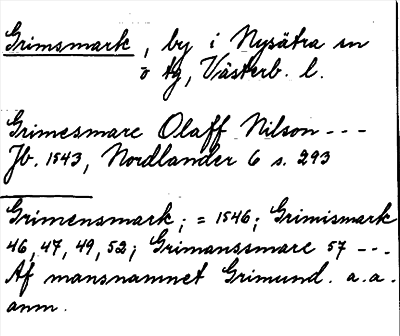 Grimsmark, by i Nysätra sn
o tg, Västerb. l.
Grimesmarc Olaff Nilson ---
Jb. 1543, Nordlander 6 s. 293
Grimensmark; = 1546; Grimismark
46, 47, 49, 52; Grimanssmarc 57 ---
Af mansnamnet Grimund. a.a.
anm.